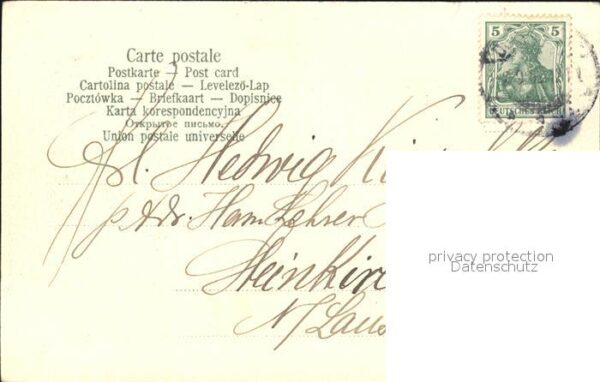 Carte postale
Postkarte — Post card
Cartolina postale — Levelező-Lap
Pocztówka — Briefkaart — Dopisnice
Karta korespondencyjna
Открытое письмо.
Union postale universelle
5 5
DEUTSCHES REICH
Frl. Hedwig
p. Adr. Herrn Lehrer
Steinkirc
N/Laus
privacy protection
Datenschutz